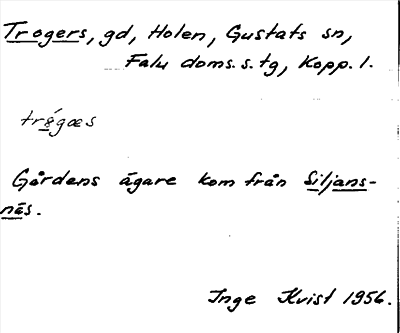 Trogers, gd, Holen, Gustafs sn,
Falu doms. s. tg, Kopp. l.
trógæs
Gårdens ägare kom från Siljans-
näs.
Inge Kvist 1956.